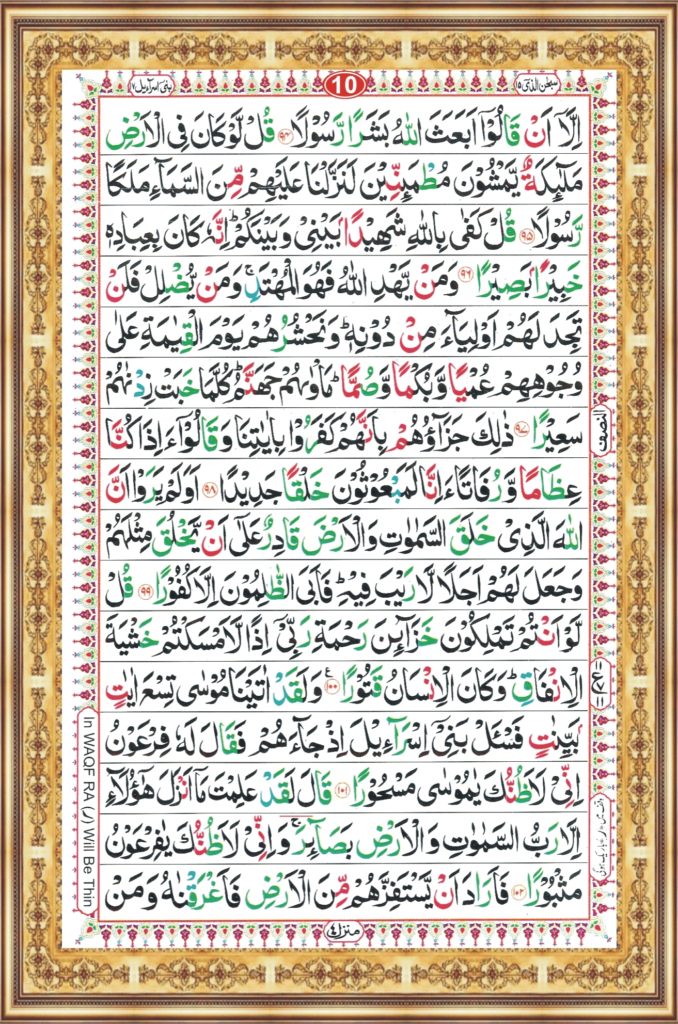 سبحٰن الذی ۱۵
10
بنی اسرآءیل ۱۷
اِلَّاۤ اَنْ قَالُوْۤا اَبَعَثَ اللّٰهُ بَشَرًا رَّسُوْلًا ﴿۹۴﴾ قُلْ لَّوْ كَانَ فِی الْاَرْضِ
مَلٰٓىِٕكَةٌ یَّمْشُوْنَ مُطْمَىِٕنِّیْنَ لَنَزَّلْنَا عَلَیْهِمْ مِّنَ السَّمَآءِ مَلَكًا
رَّسُوْلًا ﴿۹۵﴾ قُلْ كَفٰی بِاللّٰهِ شَهِیْدًۢا بَیْنِیْ وَ بَیْنَكُمْ ؕ اِنَّهٗ كَانَ بِعِبَادِهٖ
خَبِیْرًۢا بَصِیْرًا ﴿۹۶﴾ وَ مَنْ یَّهْدِ اللّٰهُ فَهُوَ الْمُهْتَدِ ۚ وَ مَنْ یُّضْلِلْ فَلَنْ
تَجِدَ لَهُمْ اَوْلِیَآءَ مِنْ دُوْنِهٖ ؕ وَ نَحْشُرُهُمْ یَوْمَ الْقِیٰمَةِ عَلٰی
وُجُوْهِهِمْ عُمْیًا وَّ بُكْمًا وَّ صُمًّا ؕ مَاْوٰىهُمْ جَهَنَّمُ ؕ كُلَّمَا خَبَتْ زِدْنٰهُمْ
سَعِیْرًا ﴿۹۷﴾ ذٰلِكَ جَزَآؤُهُمْ بِاَنَّهُمْ كَفَرُوْا بِاٰیٰتِنَا وَ قَالُوْۤا ءَاِذَا كُنَّا
النصف
عِظَامًا وَّ رُفَاتًا ءَاِنَّا لَمَبْعُوْثُوْنَ خَلْقًا جَدِیْدًا ﴿۹۸﴾ اَوَ لَمْ یَرَوْا اَنَّ
اللّٰهَ الَّذِیْ خَلَقَ السَّمٰوٰتِ وَ الْاَرْضَ قَادِرٌ عَلٰۤی اَنْ یَّخْلُقَ مِثْلَهُمْ
وَ جَعَلَ لَهُمْ اَجَلًا لَّا رَیْبَ فِیْهِ ؕ فَاَبَی الظّٰلِمُوْنَ اِلَّا كُفُوْرًا ﴿۹۹﴾ قُلْ
لَّوْ اَنْتُمْ تَمْلِكُوْنَ خَزَآىِٕنَ رَحْمَةِ رَبِّیْۤ اِذًا لَّاَمْسَكْتُمْ خَشْیَةَ
الْاِنْفَاقِ ؕ وَ كَانَ الْاِنْسَانُ قَتُوْرًا ﴿۱۰۰﴾ وَ لَقَدْ اٰتَیْنَا مُوْسٰی تِسْعَ اٰیٰتٍۭ
بَیِّنٰتٍ فَسْـَٔلْ بَنِیْۤ اِسْرَآءِیْلَ اِذْ جَآءَهُمْ فَقَالَ لَهٗ فِرْعَوْنُ
اِنِّیْ لَاَظُنُّكَ یٰمُوْسٰی مَسْحُوْرًا ﴿۱۰۱﴾ قَالَ لَقَدْ عَلِمْتَ مَاۤ اَنْزَلَ هٰۤؤُلَآءِ
اِلَّا رَبُّ السَّمٰوٰتِ وَ الْاَرْضِ بَصَآىِٕرَ ۚ وَ اِنِّیْ لَاَظُنُّكَ یٰفِرْعَوْنُ
مَثْبُوْرًا ﴿۱۰۲﴾ فَاَرَادَ اَنْ یَّسْتَفِزَّهُمْ مِّنَ الْاَرْضِ فَاَغْرَقْنٰهُ وَ مَنْ
In WAQF RA (ر) Will Be Thin
منزل ۴